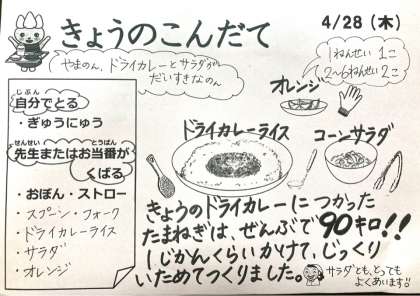 きょうのこんだて
4/28（木）
やまのん、ドライカレーとサラダが
だいすきなのん
1ねんせい 1こ
2〜6ねんせい 2こ
オレンジ
じぶん
自分でとる
・ぎゅうにゅう
せんせい とうばん
先生またはお当番が
くばる
・おぼん・ストロー
・スプーン・フォーク
・ドライカレーライス
・サラダ
・オレンジ
ドライカレーライス
コーンサラダ
きょうのドライカレーにつかった
たまねぎは、ぜんぶで90キロ!!
1じかんくらいかけて、じっくり
いためてつくりました。
サラダとも、とっても
よくあいます!!